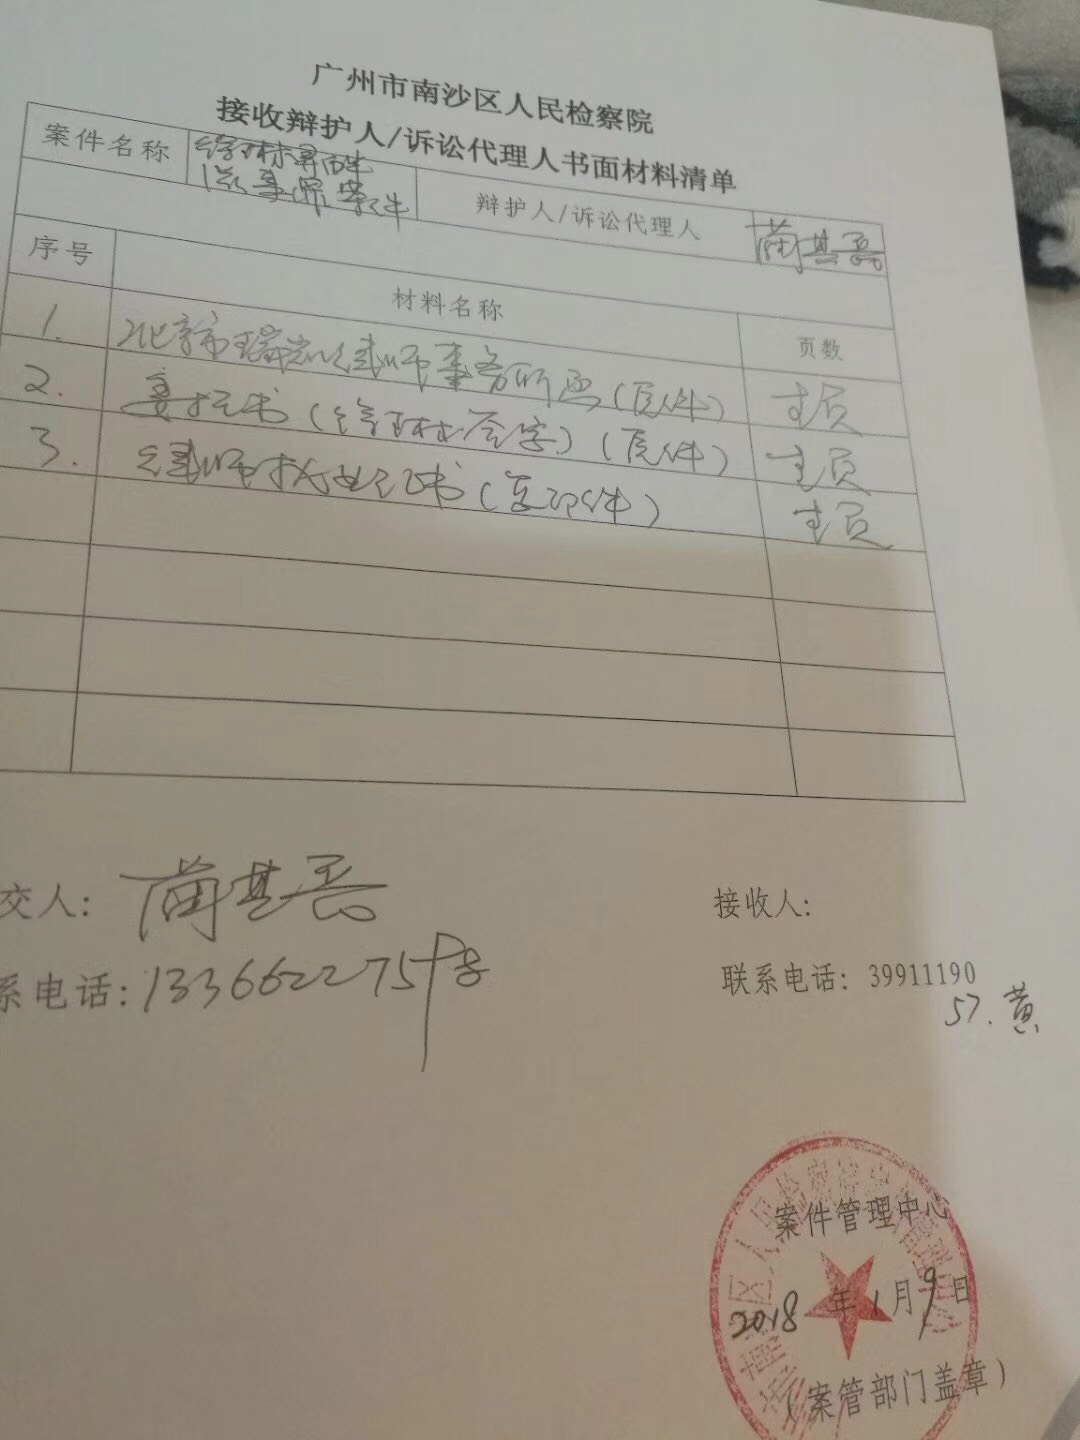 广州市南沙区人民检察院
接收辩护人/诉讼代理人书面材料清单
案件名称
徐琳寻衅
滋事罪案件
辩护人/诉讼代理人
蔺其磊
序号 材料名称 页数
1. 北京市瑞凯律师事务所函(原件) 壹页
2. 委托书(徐琳签字)(原件) 壹页
3. 律师执业证书(复印件) 壹页
交人: 蔺其磊
系电话: 13366227598
接收人:
联系电话: 39911190
57.黄
案件管理中心
2018年1月9日
(案管部门盖章)